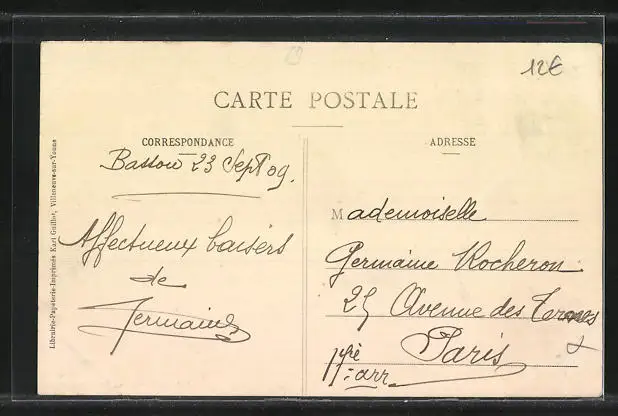 12€
CARTE POSTALE
CORRESPONDANCE
ADRESSE
Bassou 23 Sept 09.
Affectueux baisers
de
Germaine
Mademoiselle
Germaine Rocheron
25 Avenue des Ternes
Paris
arr
Librairie-Papeterie-Imprimés Karl Guillot, Villeneuve-sur-Yonne